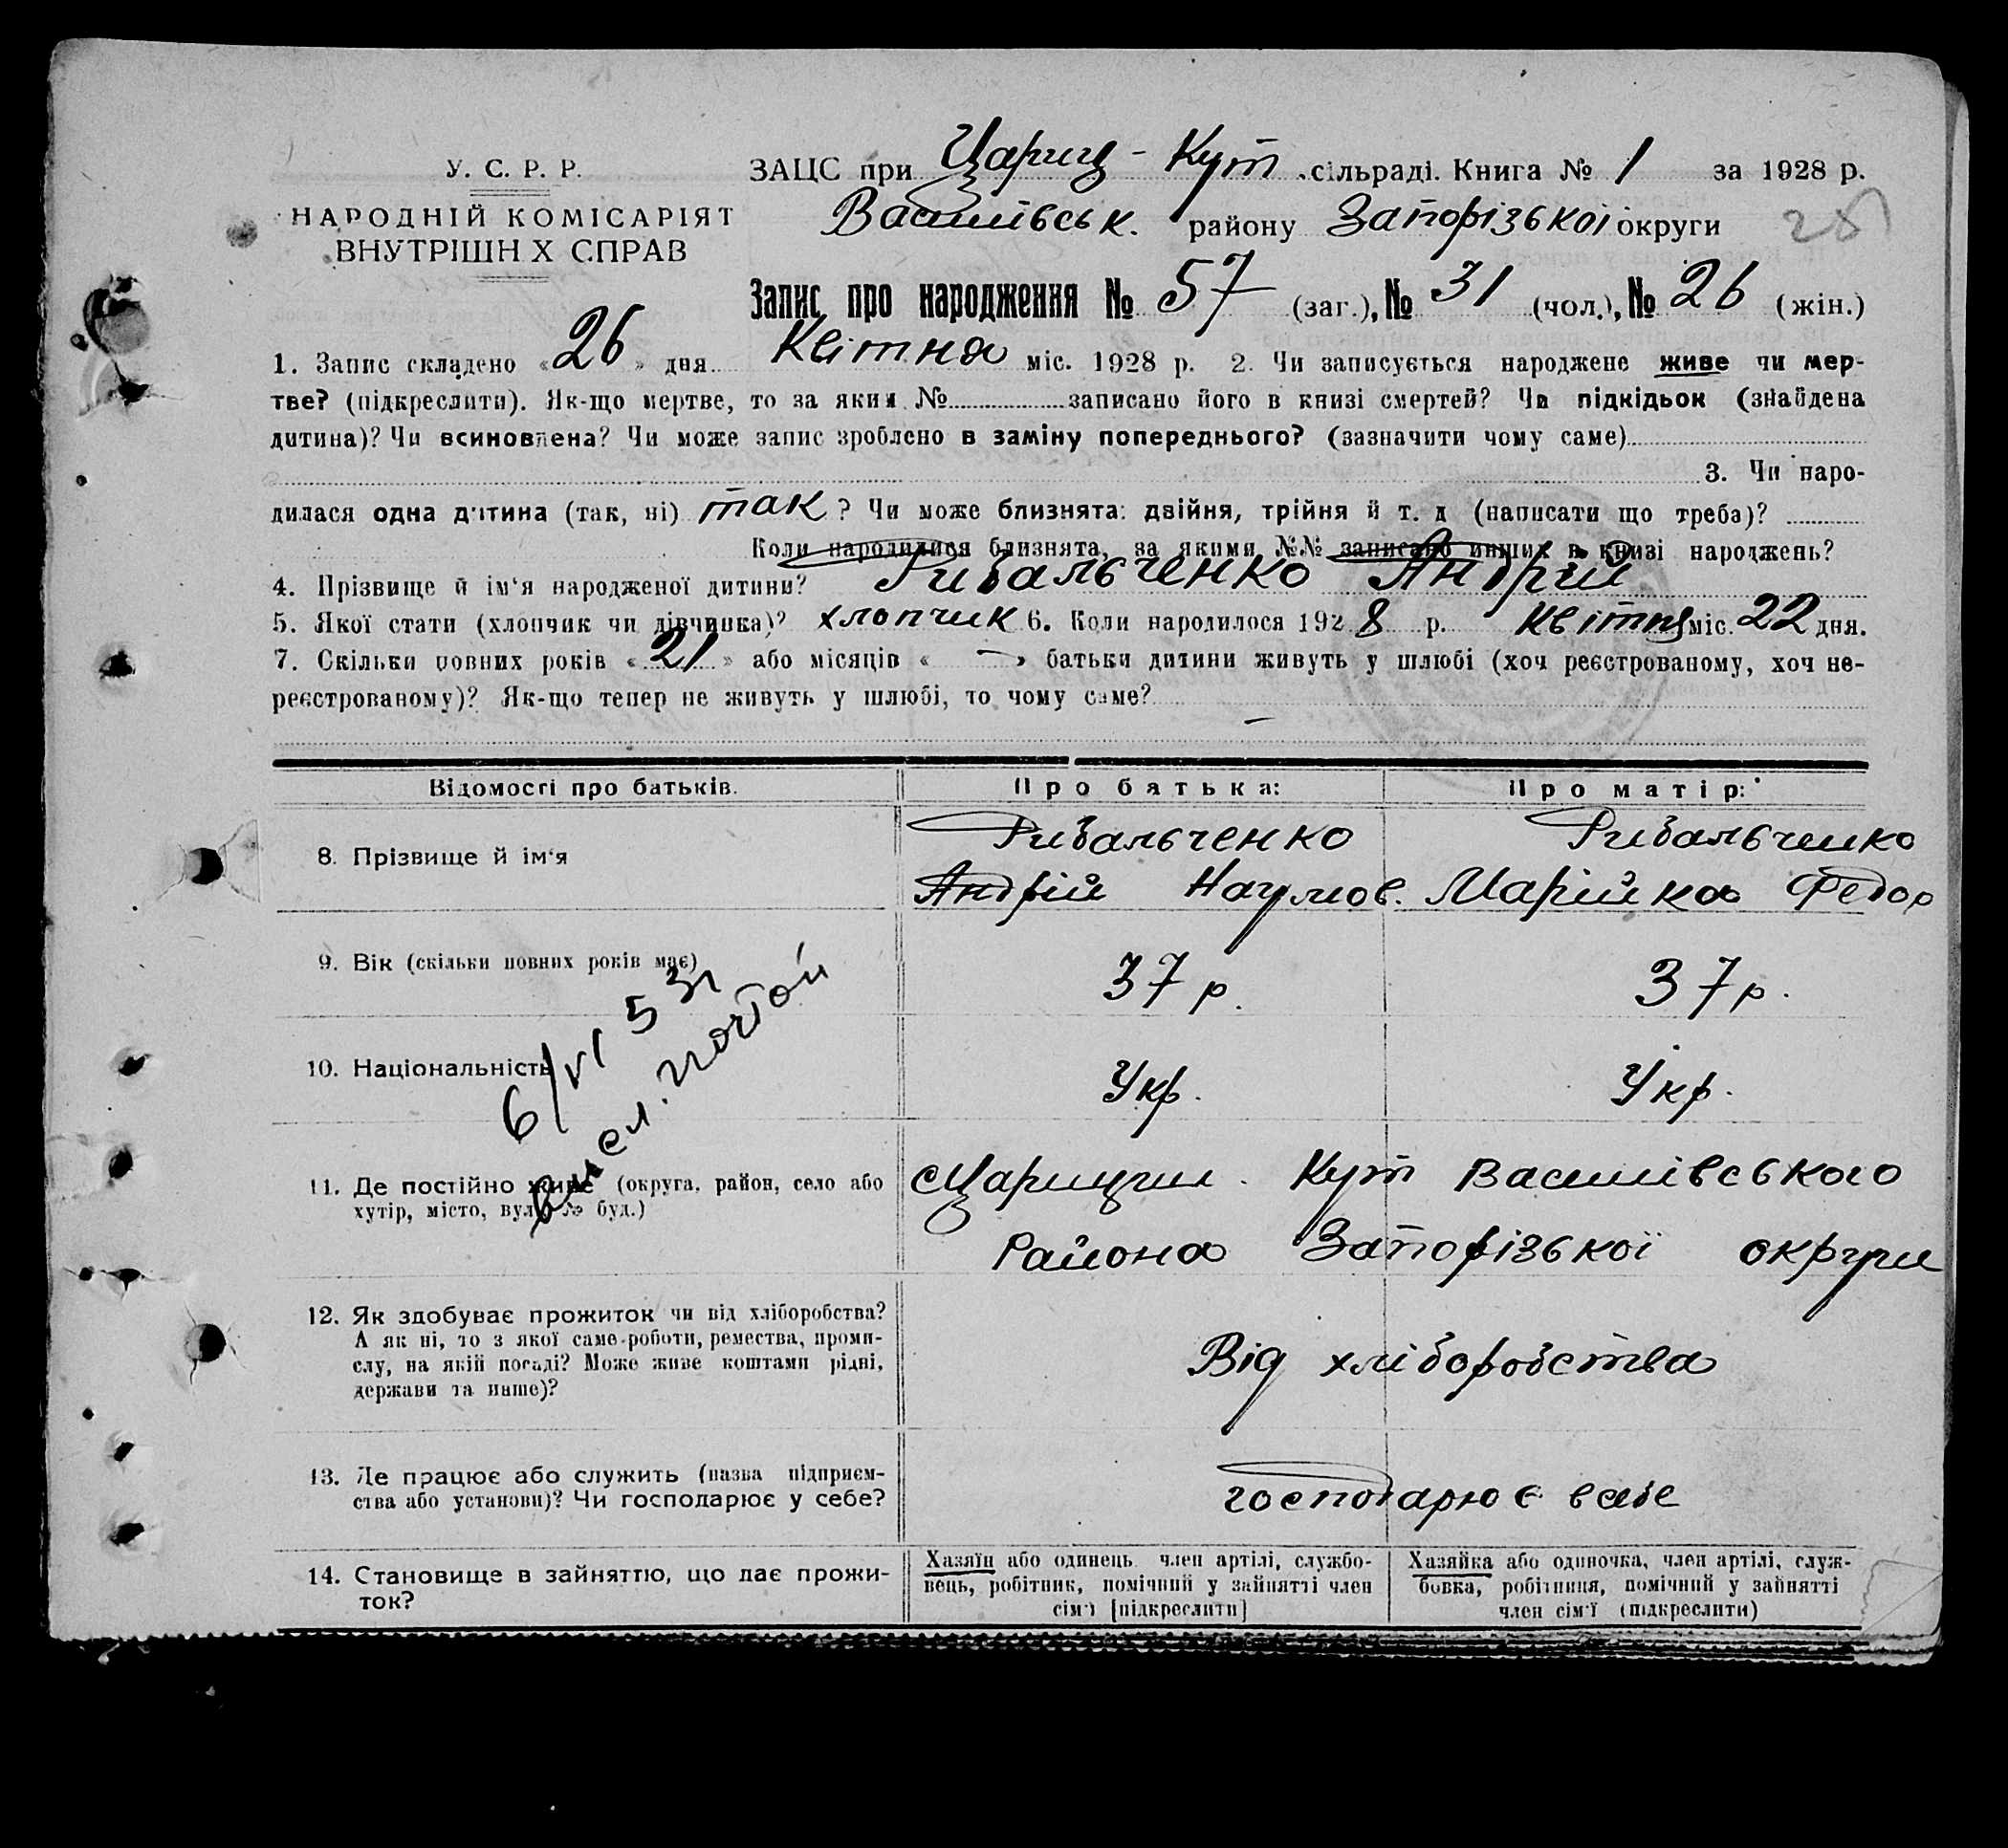 У. С. Р. Р.
НАРОДНІЙ КОМІСАРІЯТ
ВНУТРІШН Х СПРАВ
ЗАЦС при Цариц - Кут сільраді. Книга № 1 за 1928 р.
Василівськ. району Запорізької округи
Запис про народження № 57 (заг.), № 31 (чол.), № 26 (жін.)
1. Запис складено «26» дня Квітня міс. 1928 р. 2. Чи записується народжене живе чи мер-
тве? (підкреслити). Як-що мертве, то за яким № записано його в книзі смертей? Чи підкідьок (знайдена
дитина)? Чи всиновлена? Чи може запис зроблено в заміну попереднього? (зазначити чому саме)
3. Чи наро-
дилася одна дитина (так, ні) так ? Чи може близнята: двійня, трійня й т. д (написати що треба)?
Коли народилися близнята, за якими №№ записано инших в книзі народжень?
4. Прізвище й ім'я народженої дитини? Рибальченко Андрій
5. Якої стати (хлопчик чи дівчинка)? хлопчик 6. Коли народилося 1928 р. квітня міс. 22 дня.
7. Скільки повних років «21» або місяців « — » батьки дитини живуть у шлюбі (хоч реєстрованому, хоч не-
реєстрованому)? Як-що тепер не живуть у шлюбі, то чому саме? —
Відомості про батьків. Про батька: Про матір:
8. Прізвище й ім'я
Рибальченко
Андрій Наумов.
Рибальченко
Марійка Федор
9. Вік (скільки повних років має) 37 р. 37 р.
10. Національність Укр. Укр.
6/VI 53г
почтой
11. Де постійно живе (округа, район, село або
хутір, місто, вул. № буд.)
Царицин. Кут Василівського
Района Запорізької округи
12. Як здобуває прожиток чи від хліборобства?
А як ні, то з якої саме роботи, ремества, проми-
слу, на якій посаді? Може живе коштами рідні,
держави та инше)?
Від хліборобства
13. Де працює або служить (назва підприєм-
ства або установи)? Чи господарює у себе?
господарює в себе
14. Становище в зайняттю, що дає прожи-
ток?
Хазяїн або одинець член артілі, службо-
вець, робітник, помічний у зайнятті член
сім'ї [підкреслити]
Хазяйка або одиночка, член артілі, служ-
бовка, робітниця, помічний у зайнятті
член сім'ї (підкреслити)